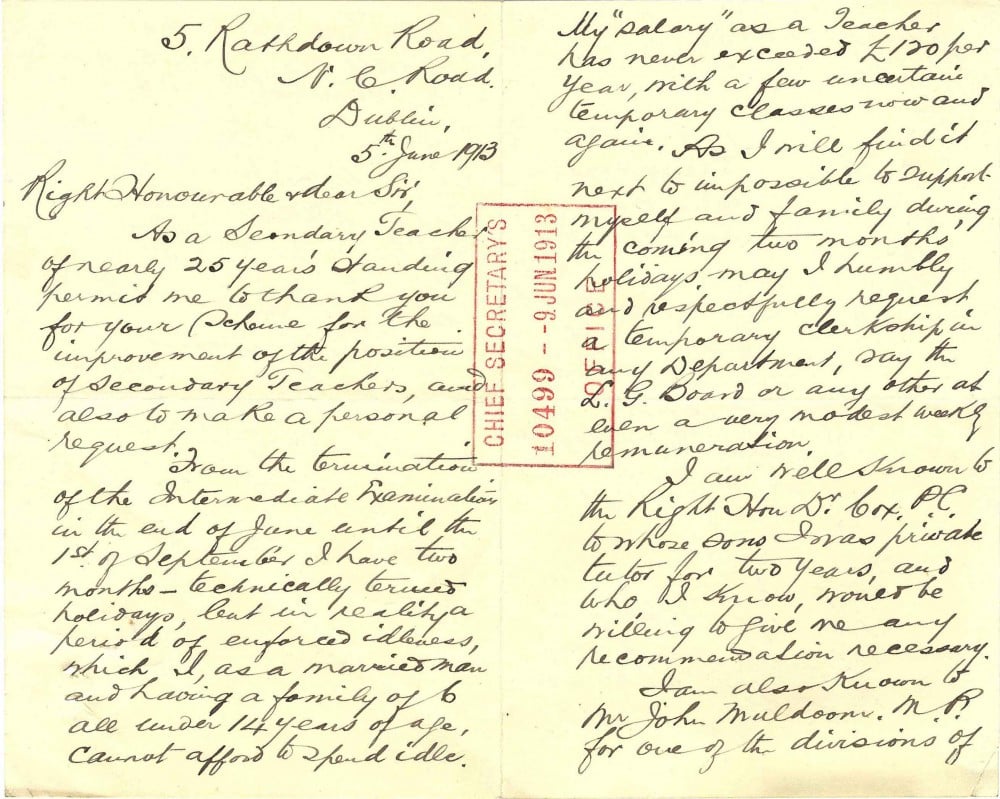 5, Rathdown Road,
N. C. Road.
Dublin,
5th June 1913
Right Honourable & dear Sir,
As a Secondary Teacher
of nearly 25 years standing
permit me to thank you
for your Scheme for the
improvement of the position
of Secondary Teachers, and
also to make a personal
request.
From the termination
of the Intermediate Examination
in the end of June until the
1st of September I have two
months – technically termed
holidays, but in reality a
period of enforced idleness,
which I, as a married man
and having a family of 6
all under 14 years of age,
cannot afford to spend idle.
CHIEF SECRETARY'S
10499 -- 9 JUN 1913
OFFICE
My "salary" as a Teacher
has never exceeded £120 per
year, with a few uncertain
temporary classes now and
again. As I will find it
next to impossible to support
myself and family during
the coming two months'
holidays, may I humbly
and respectfully request
a temporary clerkship in
any Department, say the
L. G. Board or any other at
even a very modest weekly
remuneration.
I am well known to
the Right Hon Dr. Cox, P.C.
to whose sons I was private
tutor for two years, and
who, I know, would be
willing to give me any
recommendation necessary.
I am also known to
Mr John Muldoon. M.P.
for one of the divisions of